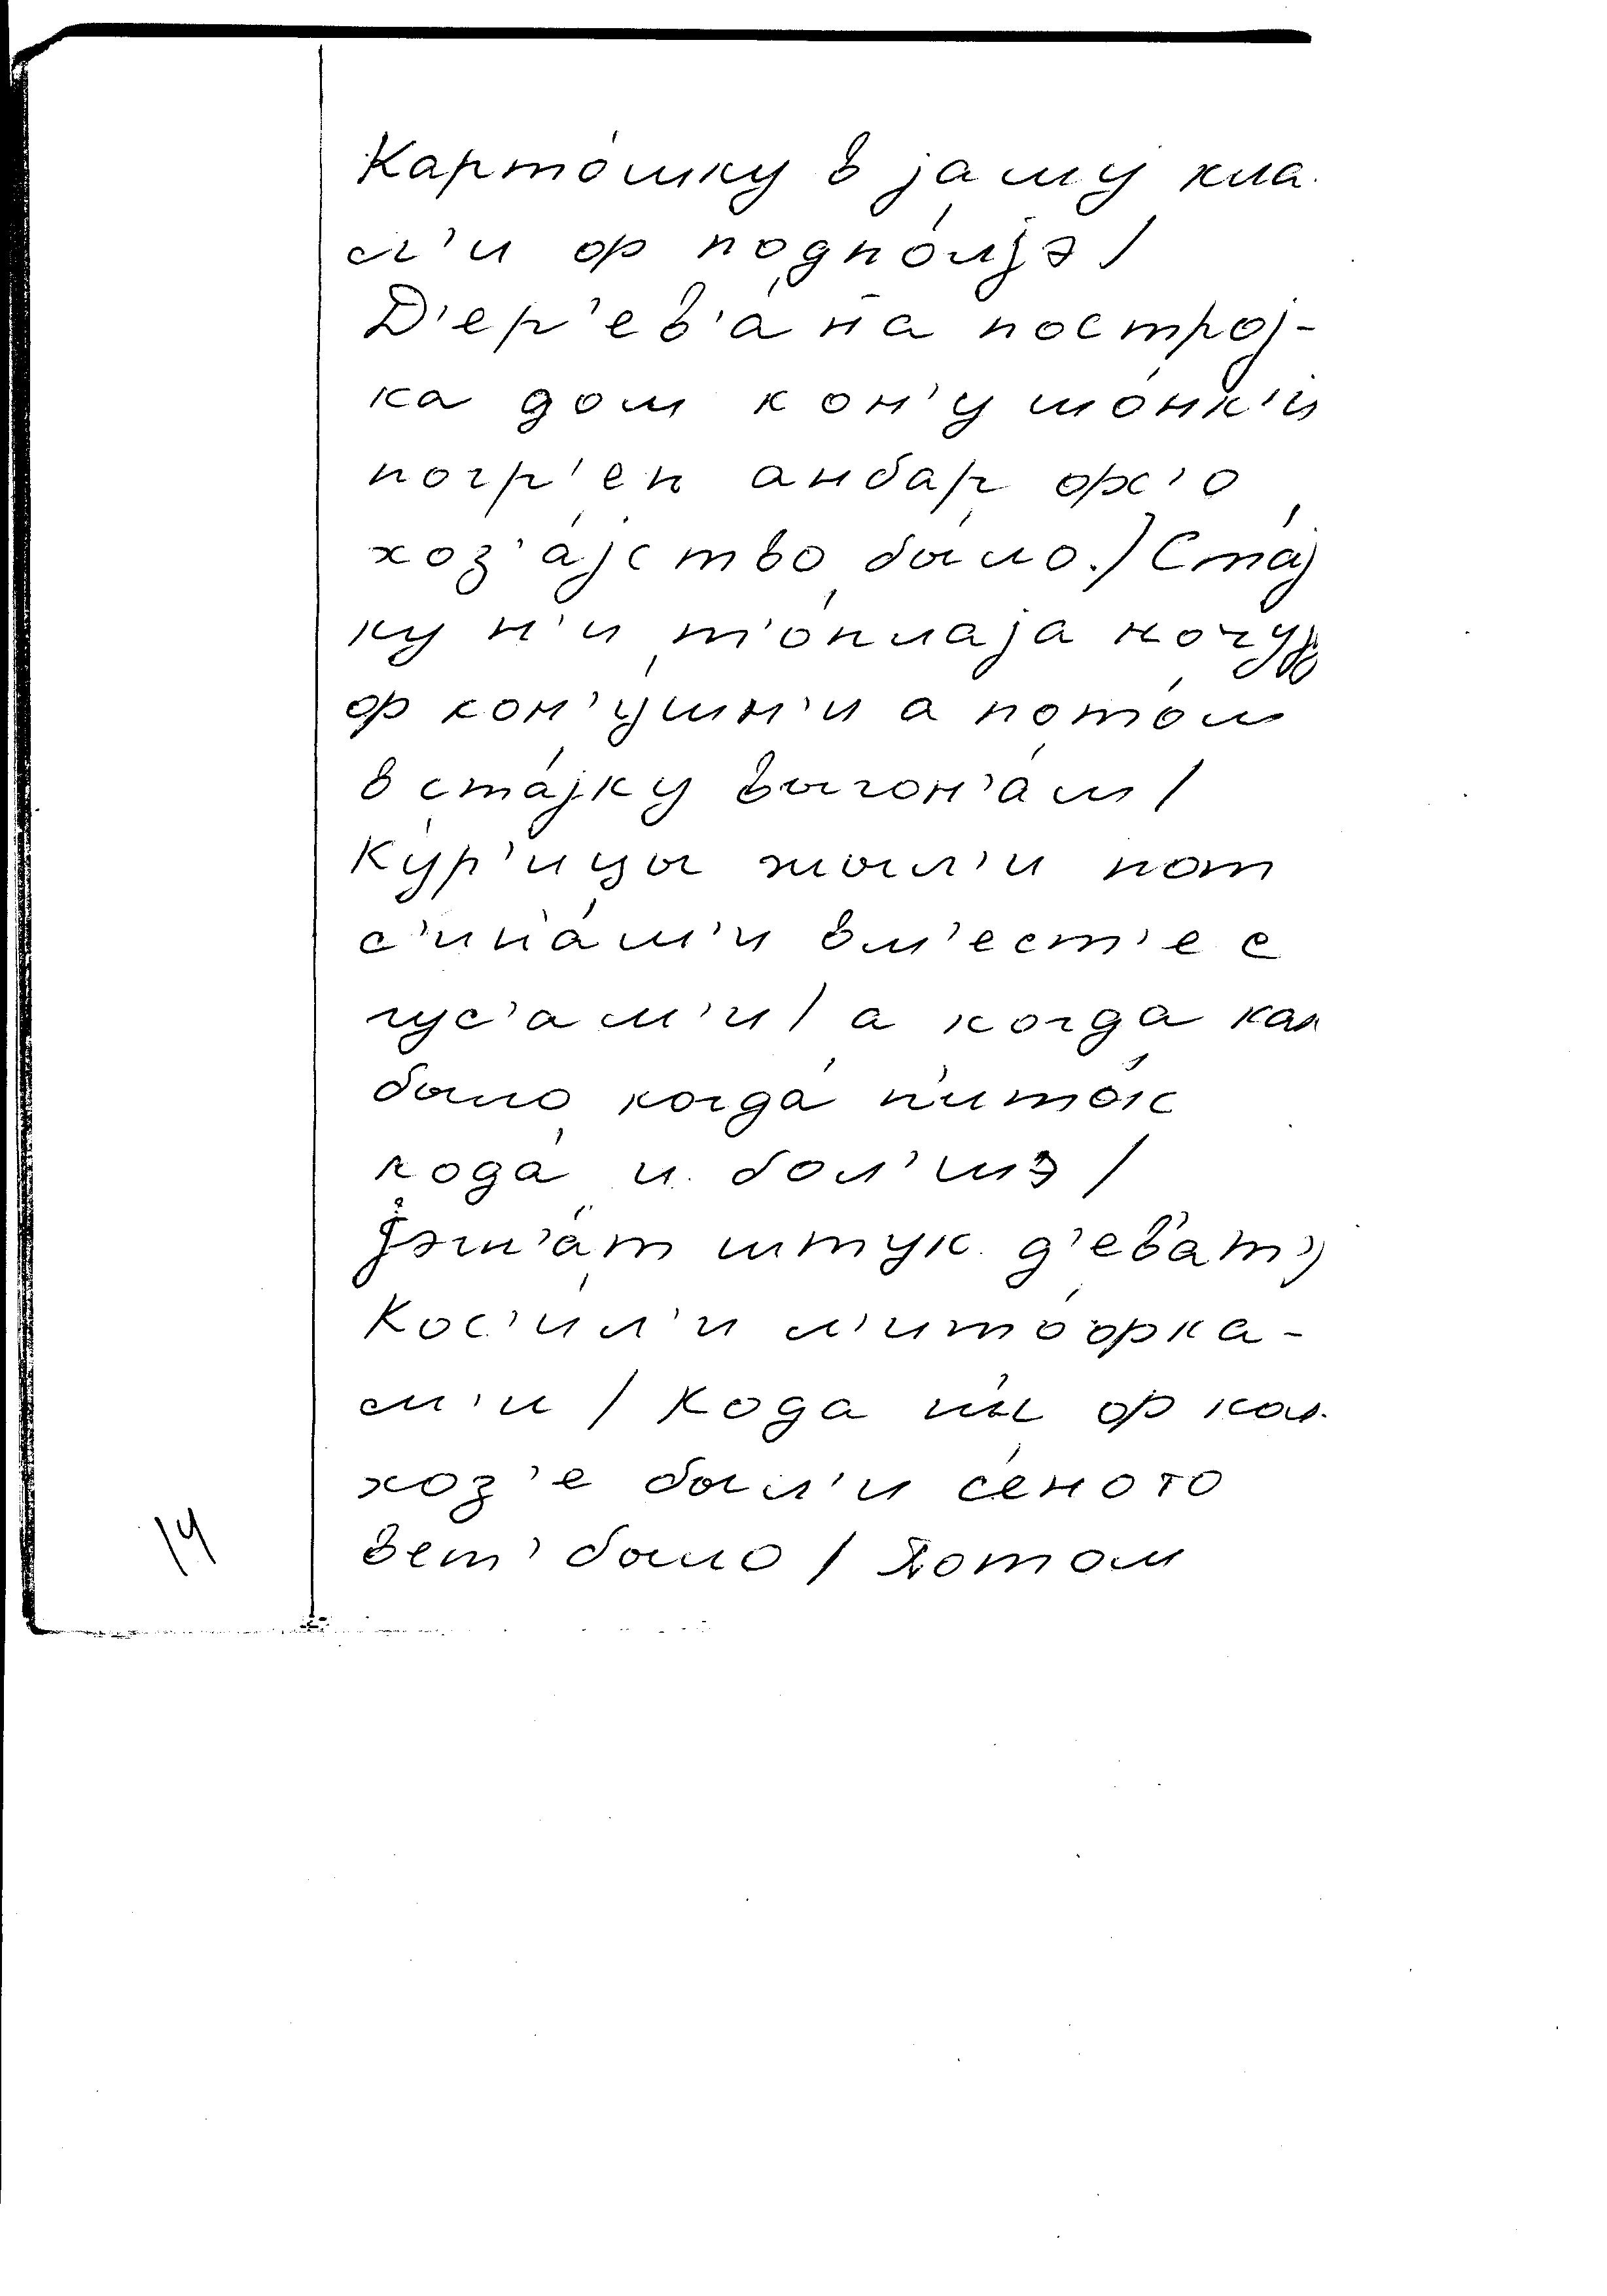 Карто́шку в jаму кла
л'и ф подпо́лjэ /
Д'ер'ев'а́н̄а построj-
ка дом кон'ушо́нк'и
погр'еп анбар фс'о
хоз'а́jство было. / Ста́j
ку н'и т'о́плаjа ночуjу
ф кон'у́шн'и а пото́м
в ста́jку выгон'а́м /
Ку́р'ицы жыл'и пот
с'ип'а́м'и вм'ест'е с
гус'ам'и / а когда как
было когда́ п'ито́к
кода́ и бол'шэ /
Jэгн'а́т штук д'ев'ат'
Кос'и́л'и л'ито́фка-
м'и / Кода мы ф кол
хоз'е был'и с'еното
вет' было / Потом
14